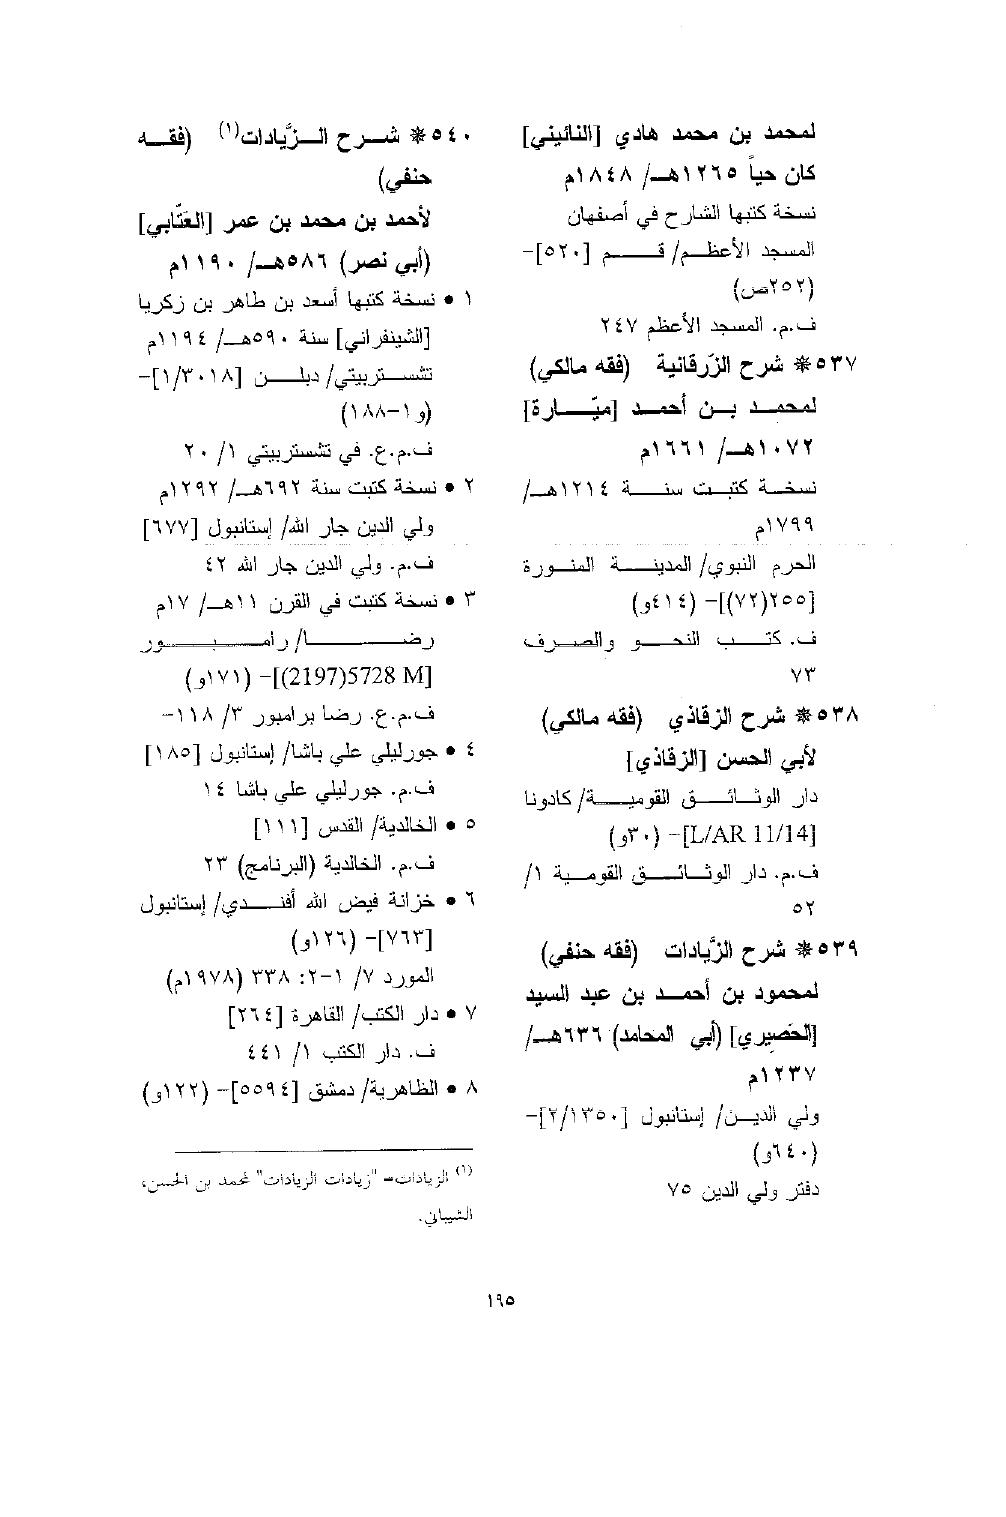 لمحمد بن محمد هادي [النائيني]
كان حياً ١٢٦٥هـ/ ١٨٤٨م
نسخة كتبها الشارح في أصفهان
المسجد الأعظم/ قم [٥٢٠]-
(٢٥٢ص)
ف.م. المسجد الأعظم ٢٤٧
٥٣٧* شرح الزّرقانية (فقه مالكي)
لمحمد بن أحمد [ميّارة]
١٠٧٢هـ/ ١٦٦١م
نسخة كتبت سنة ١٢١٤هـ/
١٧٩٩م
الحرم النبوي/ المدينة المنورة
[٢٥٥(٧٢)]- (٤١٤و)
ف. كتب النحو والصرف
٧٣
٥٣٨* شرح الزقاذي (فقه مالكي)
لأبي الحسن [الزقاذي]
دار الوثائق القومية/ كادونا
[L/AR 11/14]- (٣٠و)
ف.م. دار الوثائق القومية ١/
٥٢
٥٣٩* شرح الزَّيادات (فقه حنفي)
لمحمود بن أحمد بن عبد السيد
[الحَصِيري] (أبي المحامد) ٦٣٦هـ/
١٢٣٧م
ولي الدين/ إستانبول [٢/١٣٥٠]-
(٦٤٠و)
دفتر ولي الدين ٧٥
٥٤٠* شرح الزَّيادات(١) (فقه
حنفي)
لأحمد بن محمد بن عمر [العَتّابي]
(أبي نصر) ٥٨٦هـ/ ١١٩٠م
١ • نسخة كتبها أسعد بن طاهر بن زكريا
[الشينفراني] سنة ٥٩٠هـ/ ١١٩٤م
تشستربيتي/ دبلن [١/٣٠١٨]-
(و١-١٨٨)
ف.م.ع. في تشستربيتي ١/ ٢٠
٢ • نسخة كتبت سنة ٦٩٢هـ/ ١٢٩٢م
ولي الدين جار الله/ إستانبول [٦٧٧]
ف.م. ولي الدين جار الله ٤٢
٣ • نسخة كتبت في القرن ١١هـ/ ١٧م
رضا/ رامبور
[(2197)5728 M]- (١٧١و)
ف.م.ع. رضا برامبور ٣/ ١١٨-
٤ • جورليلي علي باشا/ إستانبول [١٨٥]
ف.م. جورليلي علي باشا ١٤
٥ • الخالدية/ القدس [١١١]
ف.م. الخالدية (البرنامج) ٢٣
٦ • خزانة فيض الله أفندي/ إستانبول
[٧٦٣]- (١٢٦و)
المورد ٧/ ١-٢: ٣٣٨ (١٩٧٨م)
٧ • دار الكتب/ القاهرة [٢٦٤]
ف. دار الكتب ١/ ٤٤١
٨ • الظاهرية/ دمشق [٥٥٩٤]- (١٢٢و)
(١) الزيادات= "زيادات الزيادات" لمحمد بن الحسن،
الشيباني.
١٩٥